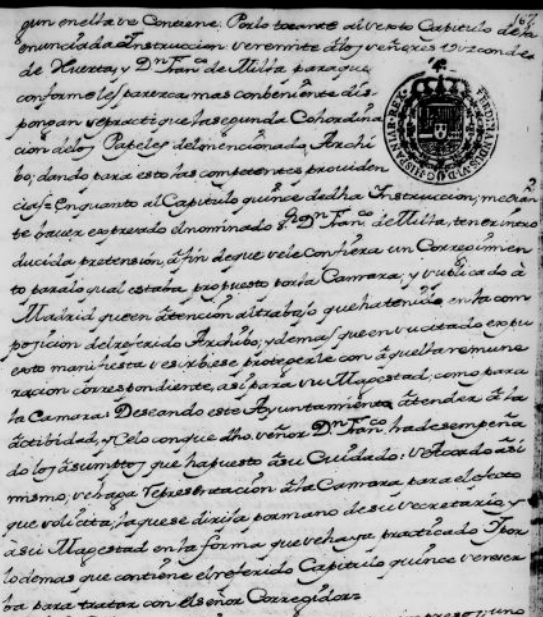 167
gun en ella se Contiene. Por lo tocante al sexto Capitulo de la
enunciada Instruccion se remite a los señores Vizconde
de Huerta, y Dn. Franco. de Milla para que
conforme les parezca mas conbeniente dis-
pongan se practique la segunda Cohordina
cion de los Papeles del mencionado Archi
bo; dando para esto las competentes providen
cias = En quanto al Capitulo quince de dha Instruccion, median
te haver expresado el nominado Sr. Dn. Franco. de Milla, tener intro
ducida pretension, a fin de que se le Confiera un Corregimien
to para lo qual estaba propuesto por la Camara; y suplicado à
Madrid que en atencion al trabajo que ha tenido en la com
posicion del referido Archibo; y demas que en su citado expu
esto manifiesta se sirbiese protegerle con aquella remune
racion correspondiente, asi para su Magestad, como para
la Camara: Deseando este Ayuntamiento atender a la
actibidad, y Celo con que dho. señor Dn. Franco. ha desempeña
do los asumptos que ha puesto a su Cuidado: se Acordo asi
mismo, se haga representacion a la Camara para el efecto
que solicita, la que se dirija por mano de su secretario, y
a su Magestad en la forma que se haya practicado Y por
lo demas que contiene el referido Capitulo quince se reser
ba para tratar con el señor Corregidor=
FERDINANDUS VI D G HISPANIAR REX